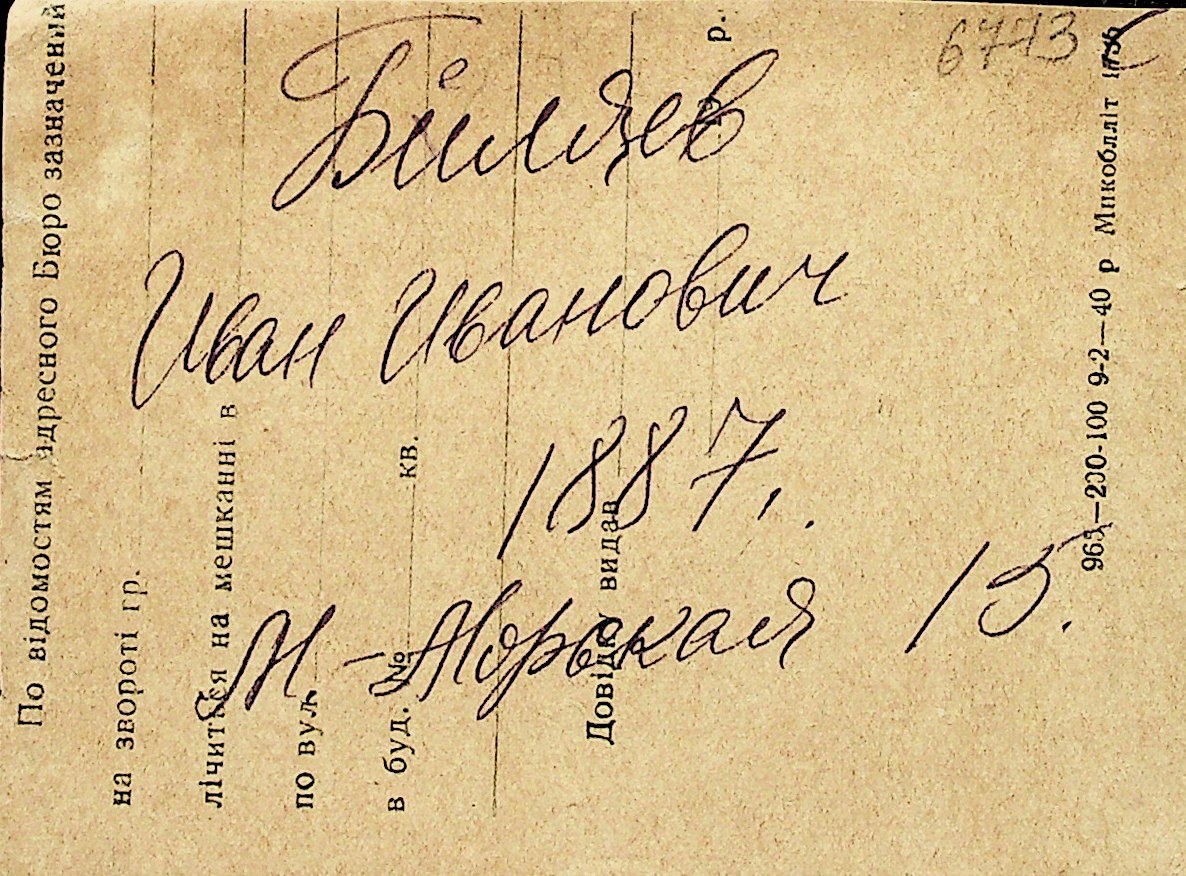 6773
Біляев
Иван Иванович
1887.
М-Морская 15.
По відомостям адресного Бюро зазначений
на звороті гр.
лічиться на мешканні в
по вул.
в буд. № кв.
Довідку видав
р.
965—200-100 9-2—40 р Микобліт